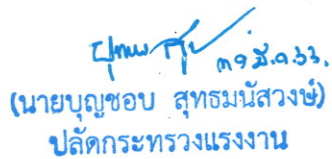 ๓๑ มี.ค. ๖๓.
(นายบุญชอบ สุทธมนัสวงษ์)
ปลัดกระทรวงแรงงาน